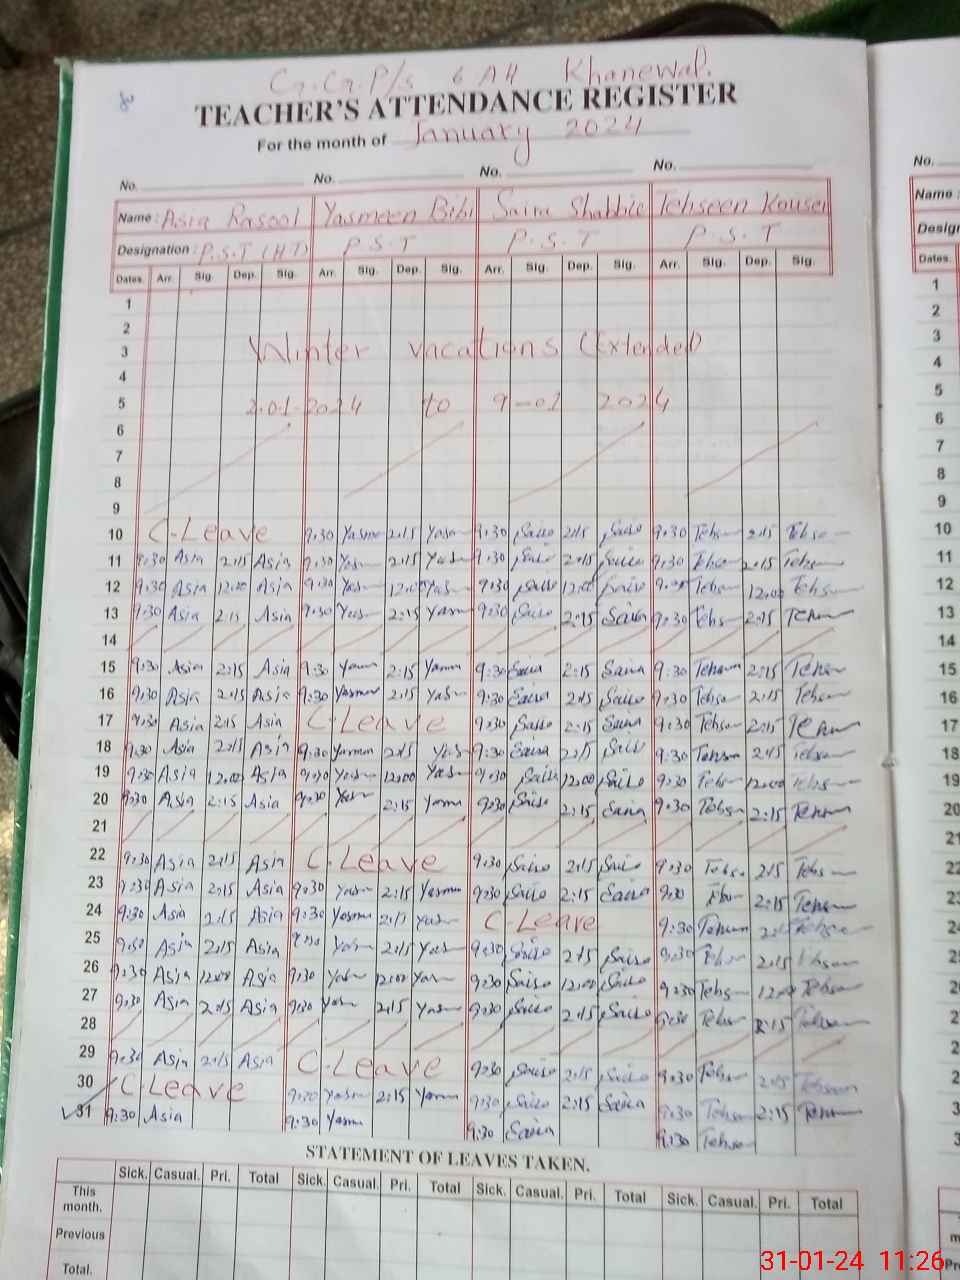 G.G.P/s 6 AH Khanewal.
TEACHER'S ATTENDANCE REGISTER
For the month of January 2024
No. No. No. No. No.
Name: Asia Rasool Yasmeen Bibi Saira Shabbir Tehseen Kouser Name:
Designation: P.S.T (H.T) P.S.T P.S.T P.S.T
Dates. Arr. Sig. Dep. Sig. Arr. Sig. Dep. Sig. Arr. Sig. Dep. Sig. Arr. Sig. Dep. Sig. Dates.
1 1
2 2
3 Winter vacations (Extended) 3
4 4
5 2-01-2024 to 9-01 2024 5
6 6
7 7
8 8
9 9
10 C-Leave 9:30 Yasm 2:15 Yasm 9:30 Saira 2:15 Saira 9:30 Tehs 2:15 Tehs 10
11 9:30 Asia 2:15 Asia 9:30 Yas 2:15 Yas 9:30 Saira 2:15 Saira 9:30 Tehs 2:15 Tehs 11
12 9:30 Asia 12:00 Asia 9:30 Yas 12:00 Yas 9:30 Saira 12:00 Saira 9:30 Tehs 12:00 Tehs 12
13 9:30 Asia 2:15 Asia 9:30 Yas 2:15 Yasm 9:30 Saira 2:15 Saira 9:30 Tehs 2:15 Tehs 13
14 14
15 9:30 Asia 2:15 Asia 9:30 Yasm 2:15 Yasm 9:30 Saira 2:15 Saira 9:30 Tehs 2:15 Tehs 15
16 9:30 Asia 2:15 Asia 9:30 Yasm 2:15 Yas 9:30 Saira 2:15 Saira 9:30 Tehs 2:15 Tehs 16
17 9:30 Asia 2:15 Asia C-Leave 9:30 Saira 2:15 Saira 9:30 Tehs 2:15 Tehs 17
18 9:30 Asia 2:15 Asia 9:30 Yasm 2:15 Yas 9:30 Saira 2:15 Saira 9:30 Tehs 2:15 Tehs 18
19 9:30 Asia 12:00 Asia 9:30 Yas 12:00 Yas 9:30 Saira 12:00 Saira 9:30 Tehs 12:00 Tehs 19
20 9:30 Asia 2:15 Asia 9:30 Yas 2:15 Yasm 9:30 Saira 2:15 Saira 9:30 Tehs 2:15 Tehs 20
21 21
22 9:30 Asia 2:15 Asia C-Leave 9:30 Saira 2:15 Saira 9:30 Tehs 2:15 Tehs
23 9:30 Asia 2:15 Asia 9:30 Yasm 2:15 Yasm 9:30 Saira 2:15 Saira 9:30 Tehs 2:15 Tehs
24 9:30 Asia 2:15 Asia 9:30 Yasm 2:15 Yas C-Leave 9:30 Tehs 2:15 Tehs
25 9:30 Asia 2:15 Asia 9:30 Yas 2:15 Yas 9:30 Saira 2:15 Saira 9:30 Tehs 2:15 Tehs
26 9:30 Asia 12:00 Asia 9:30 Yas 12:00 Yas 9:30 Saira 12:00 Saira 9:30 Tehs 12:00 Tehs
27 9:30 Asia 2:15 Asia 9:30 Yas 2:15 Yas 9:30 Saira 2:15 Saira 9:30 Tehs 2:15 Tehs
28
29 9:30 Asia 2:15 Asia C-Leave 9:30 Saira 2:15 Saira 9:30 Tehs 2:15 Tehseen
30 C-Leave 9:30 Yasm 2:15 Yasm 9:30 Saira 2:15 Saira 9:30 Tehs 2:15 Tehs
31 9:30 Asia 9:30 Yasm 9:30 Saira 9:30 Tehs
STATEMENT OF LEAVES TAKEN.
Sick. Casual. Pri. Total Sick. Casual. Pri. Total Sick. Casual. Pri. Total Sick. Casual. Pri. Total
This month.
Previous
Total.
31-01-24 11:26